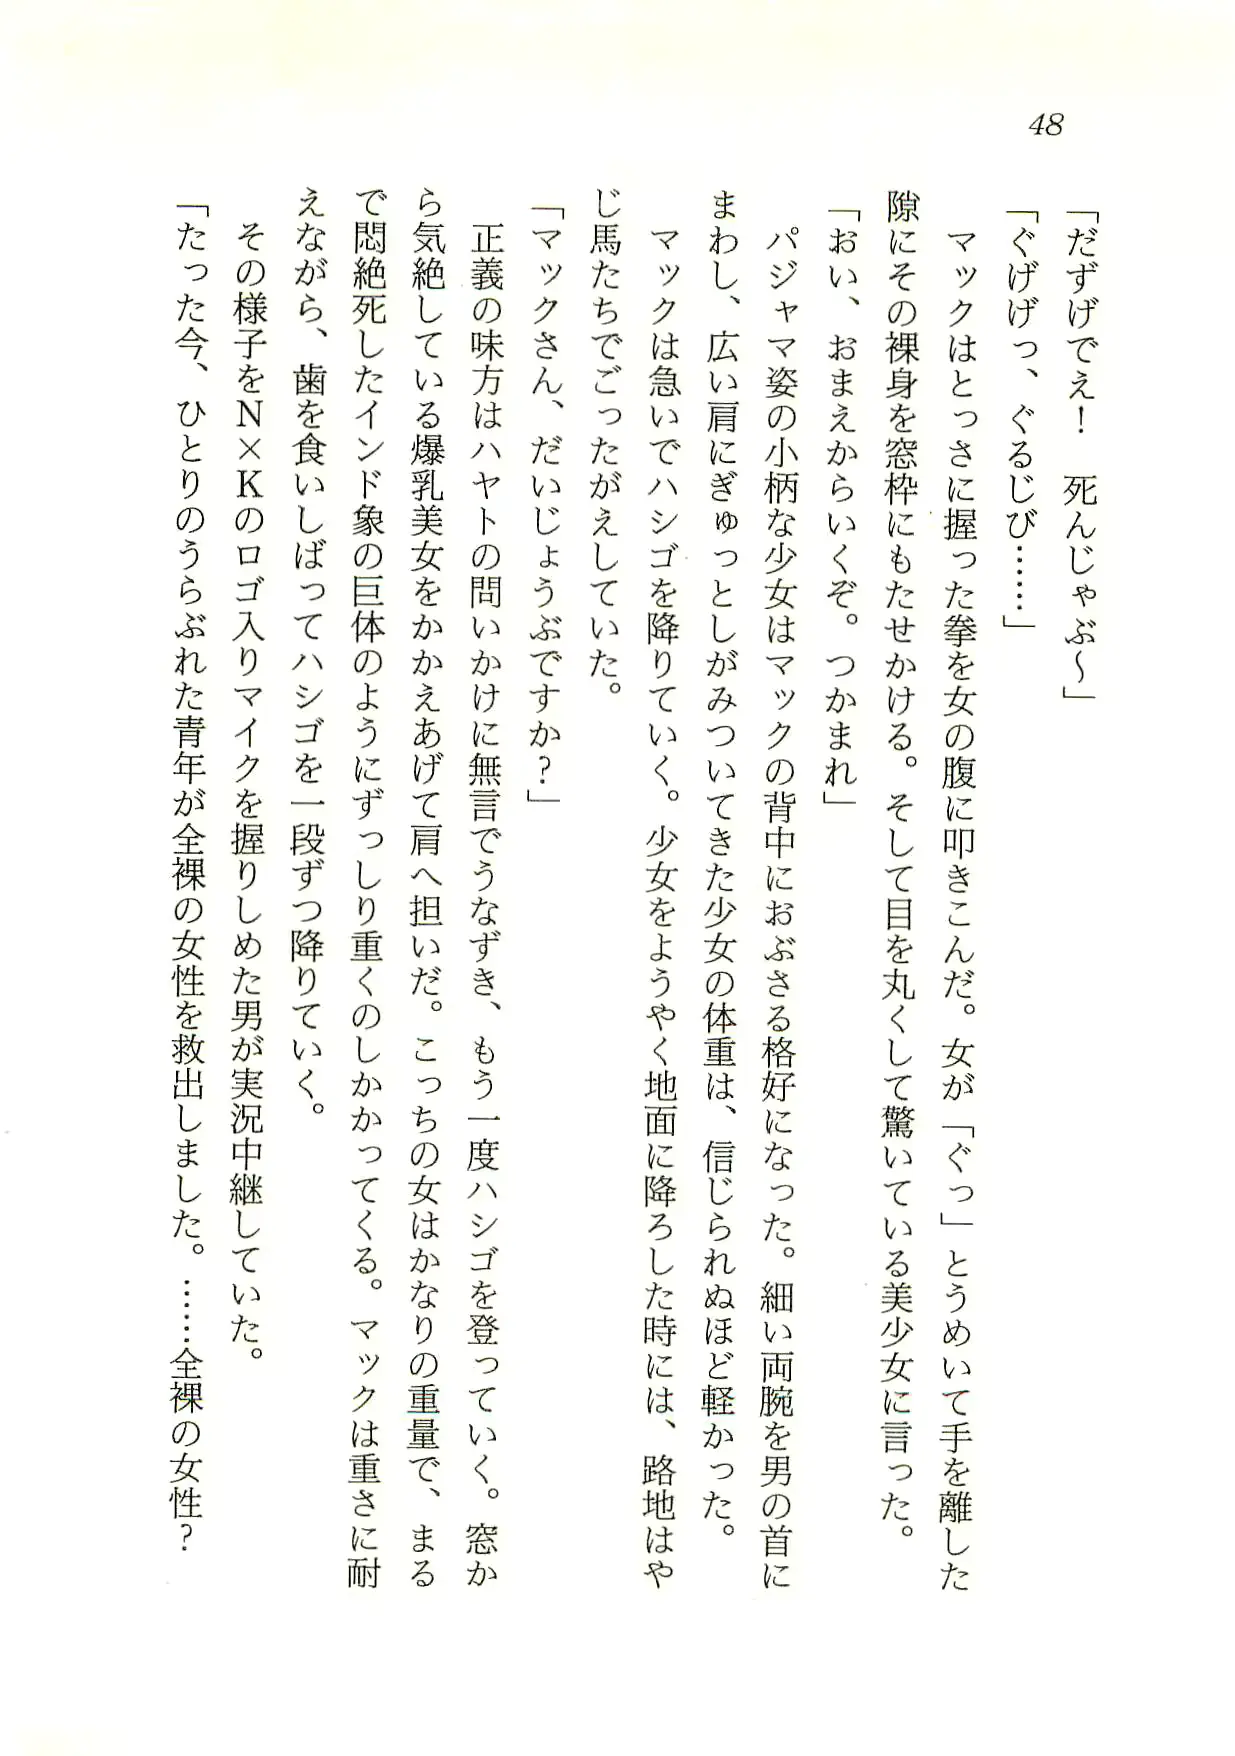 48
「だずげでえ！　死んじゃぶ〜」
「ぐげげっ、ぐるじび……」
　マックはとっさに握った拳を女の腹に叩きこんだ。女が「ぐっ」とうめいて手を離した
隙にその裸身を窓枠にもたせかける。そして目を丸くして驚いている美少女に言った。
「おい、おまえからいくぞ。つかまれ」
　パジャマ姿の小柄な少女はマックの背中におぶさる格好になった。細い両腕を男の首に
まわし、広い肩にぎゅっとしがみついてきた少女の体重は、信じられぬほど軽かった。
　マックは急いでハシゴを降りていく。少女をようやく地面に降ろした時には、路地はや
じ馬たちでごったがえしていた。
「マックさん、だいじょうぶですか？」
　正義の味方はハヤトの問いかけに無言でうなずき、もう一度ハシゴを登っていく。窓か
ら気絶している爆乳美女をかかえあげて肩へ担いだ。こっちの女はかなりの重量で、まる
で悶絶死したインド象の巨体のようにずっしり重くのしかかってくる。マックは重さに耐
えながら、歯を食いしばってハシゴを一段ずつ降りていく。
　その様子をN×Kのロゴ入りマイクを握りしめた男が実況中継していた。
「たった今、ひとりのうらぶれた青年が全裸の女性を救出しました。……全裸の女性？